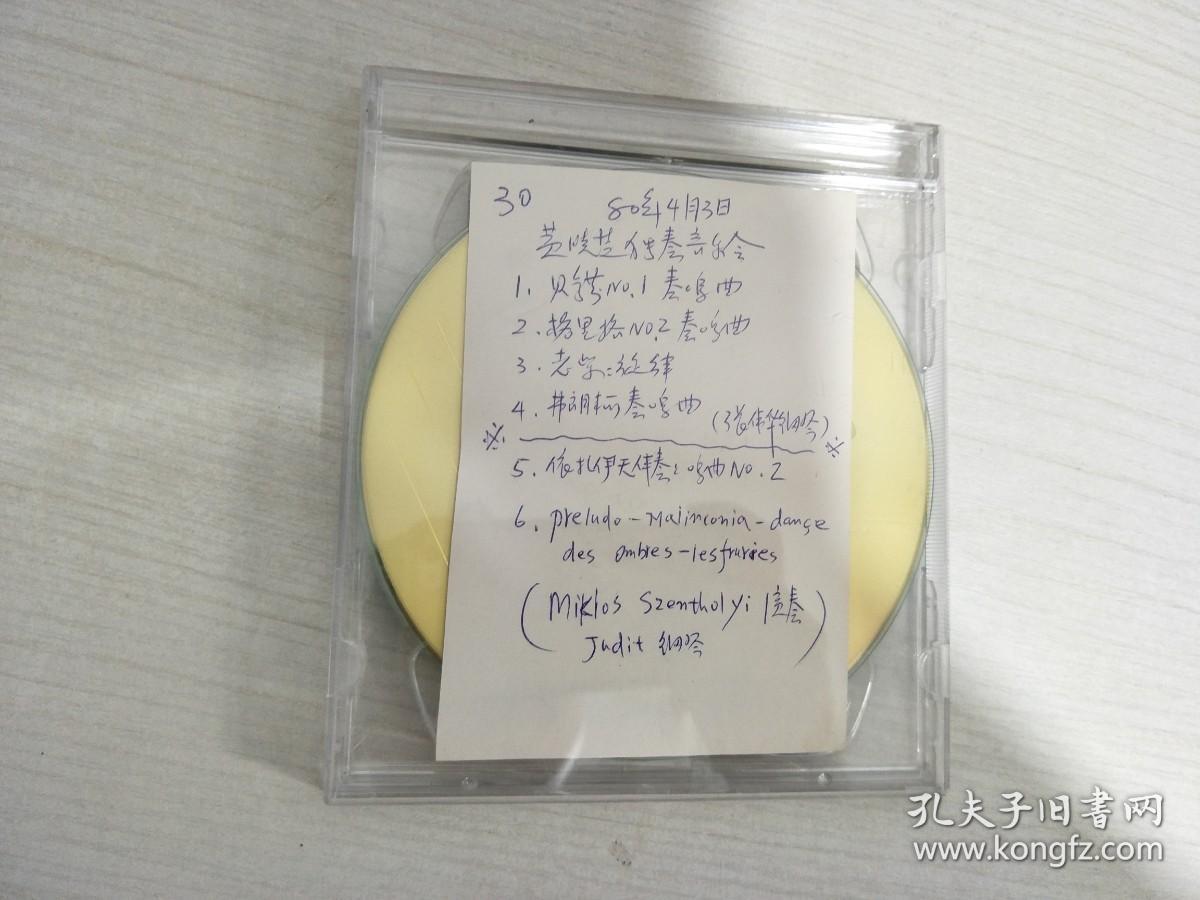 30 80年4月3日
黄晓芝独奏音乐会
1. 贝多芬No.1 奏鸣曲
2. 格里格No.2 奏鸣曲
3. 老柴:旋律
4. 弗朗柯奏鸣曲 (张伟华钢琴)
5. 依扎伊无伴奏:鸣曲No.2
6. preludo-Malinconia-danse
des ombres-lesfruries
(Miklos Szentholyi 演奏
Judit 钢琴)
孔夫子旧书网
www.kongfz.com